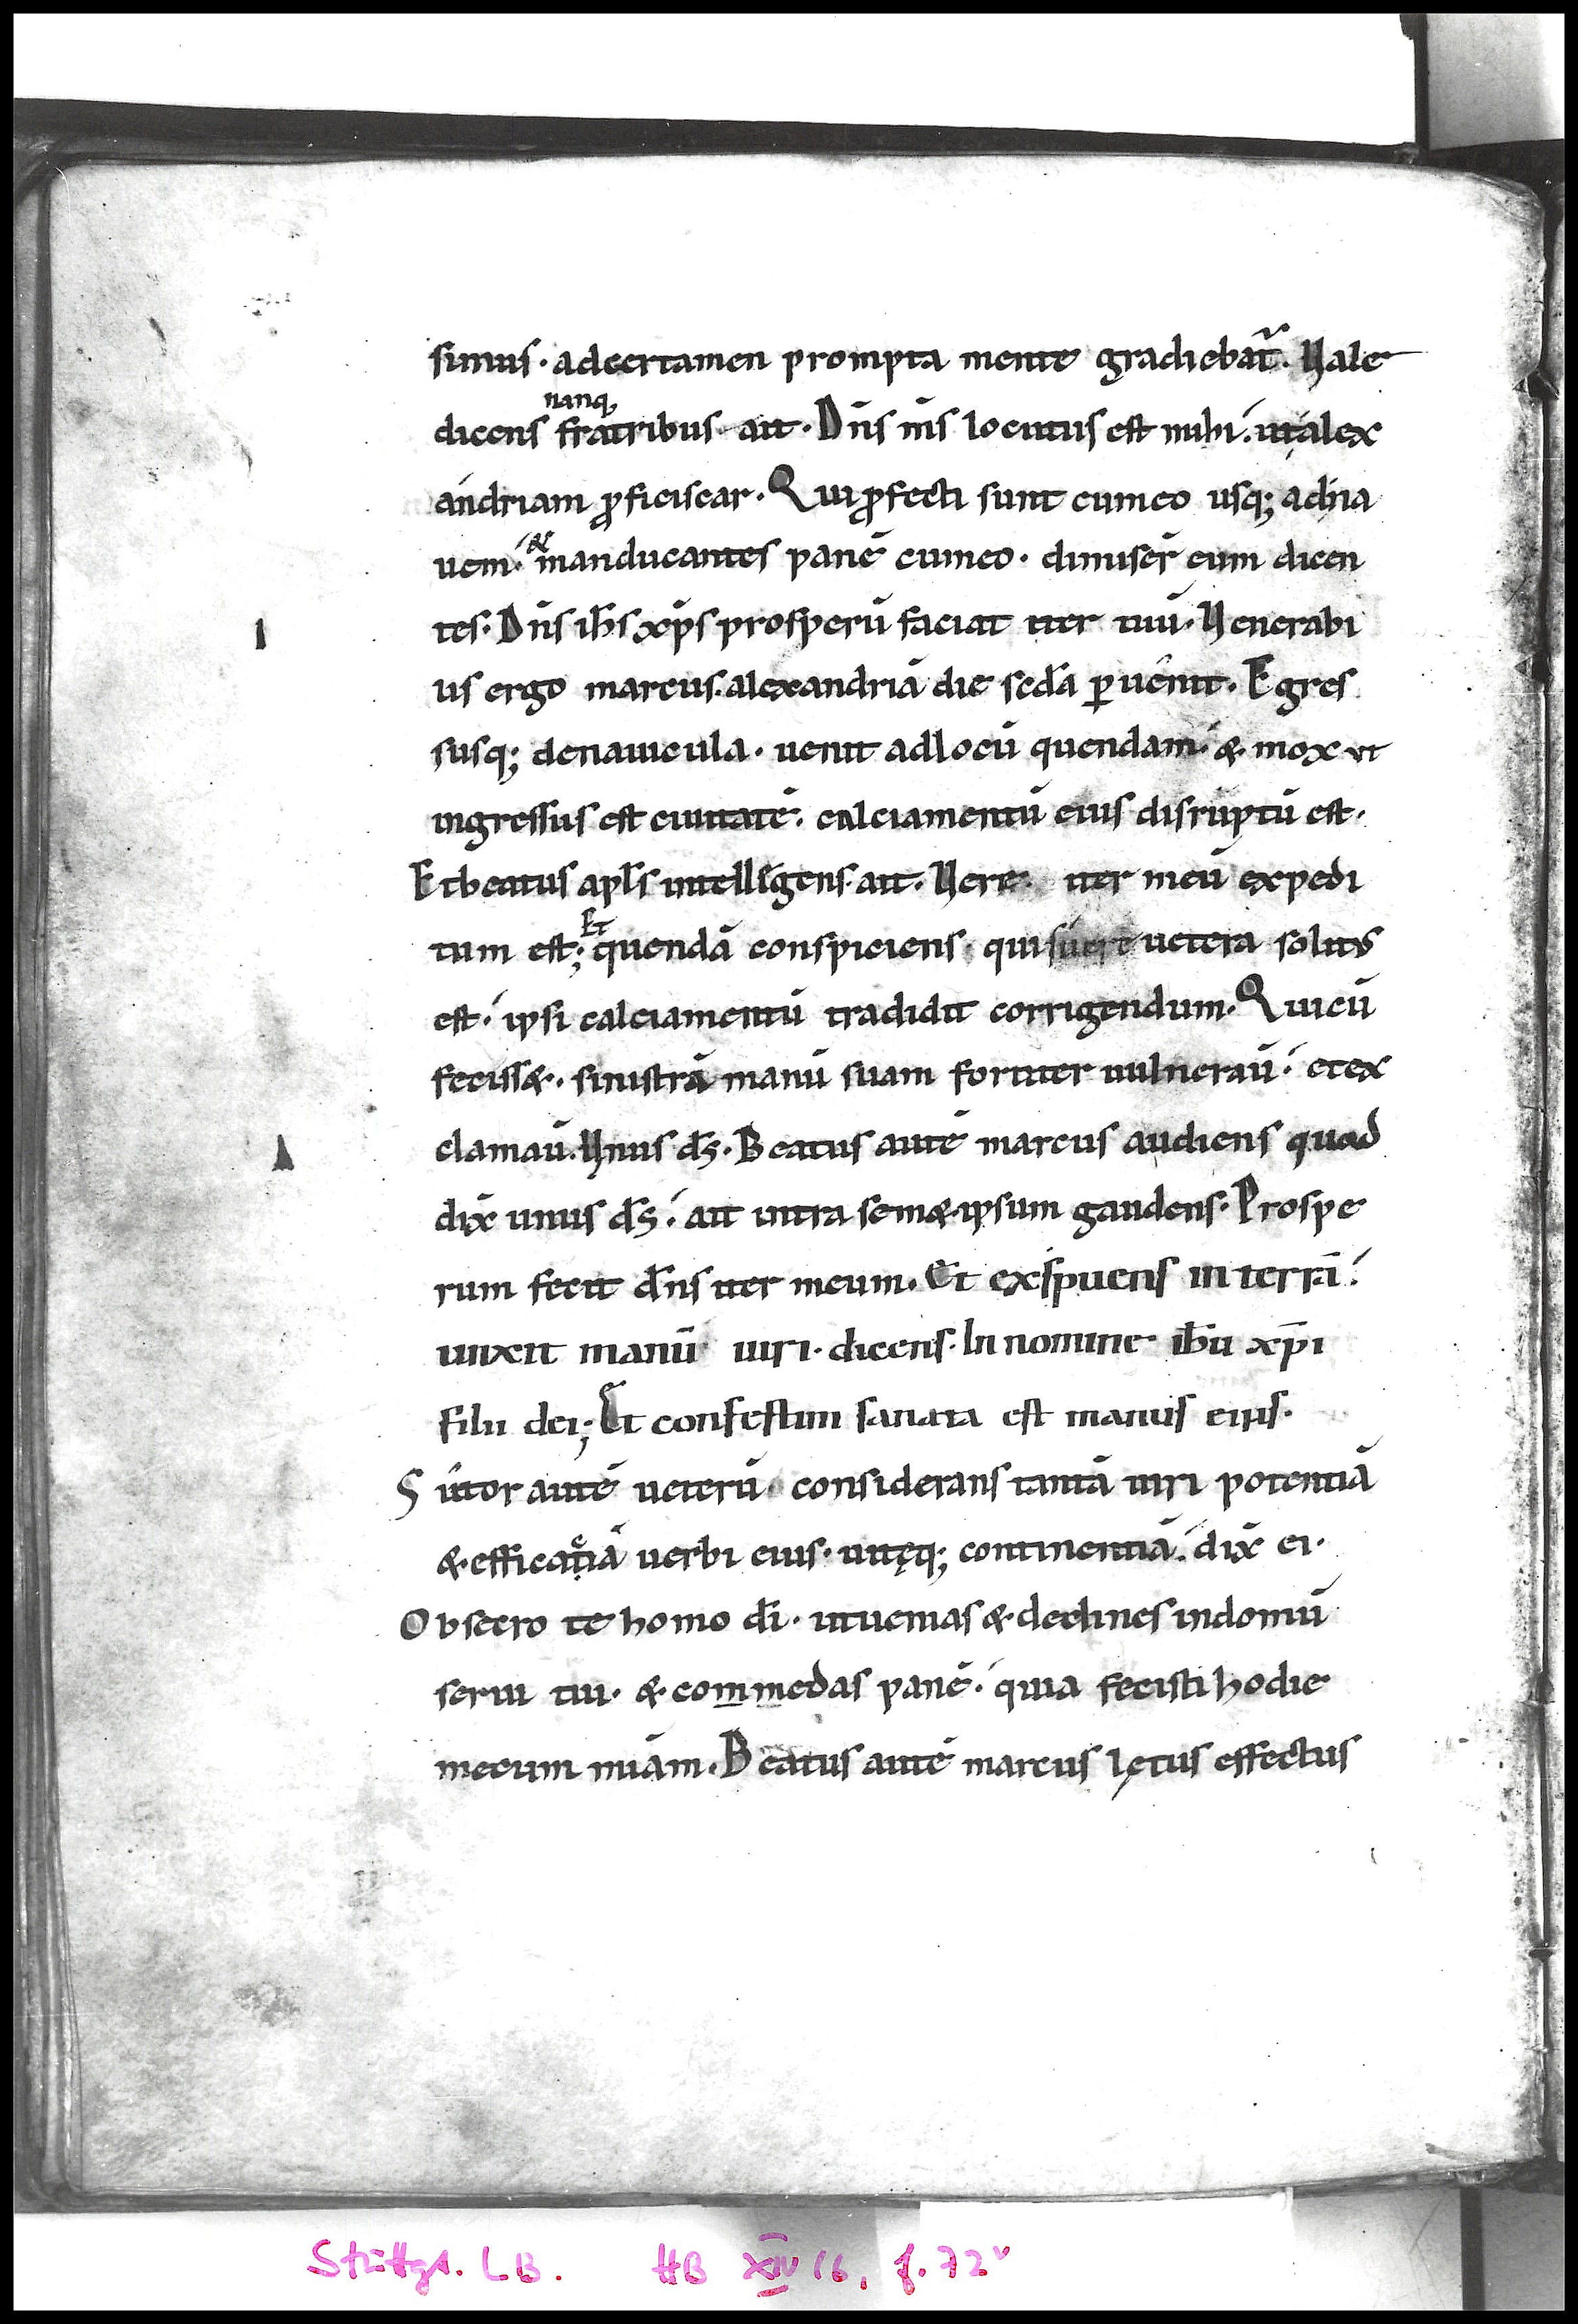 simus· adcertamen prompta mente gradiebat᷑. Vale
nanq,
dicens fratribus ait· Dn̄s m̄s locutus est mihi. ut alex
andriam ꝓficiscar· Qui ꝓfecti sunt cumeo usq; adna
&
uem· manducantes panē cumeo· dimiser̄ eum dicen
tes· Dn̄s ih̄s xp̄s prosperū faciat iter tuū· Venerabi
us ergo marcus· alexandriā die scd̄a ꝑuēnit· Egres
susq; denauicula· uenit adlocū quendam· & mox ut
ingressus est ciuitatē· calciamentū eius disruptū est·
Etbeatus apl̄s intelligens· ait· Vere iter meū expedi
Et
tum est; quendā conspiciens· qui uetera solutus
est· ipsi calciamentū tradidit corrigendum· Quicū
feciss&· sinistrā manū suam fortiter uulneraū· etex
clamaū· Vnus ds̄· Beatus autē marcus audiens quod
dix̄ unus ds̄· ait intra sem&ipsum gaudens· Prospe
rum fecit dn̄s iter meum· Et exspuens in terrā·
unxit manū uiri· dicens· In nomine ih̄u xp̄i
filii dei; Et confestim sanata est manus eius·
Sutor autē ueterū· considerans tantā uiri potentiā
& efficatiā uerbi eius· uitęq; continentiā· dix̄ ei·
Obsecro te homo dī· utuenias & declines indomū
serui tui· & commedas panē· quia fecisti hodie
mecum miām· Beatus autē marcus lętus effectus
Stuttgt. LB. HB XIV 16, f. 72v